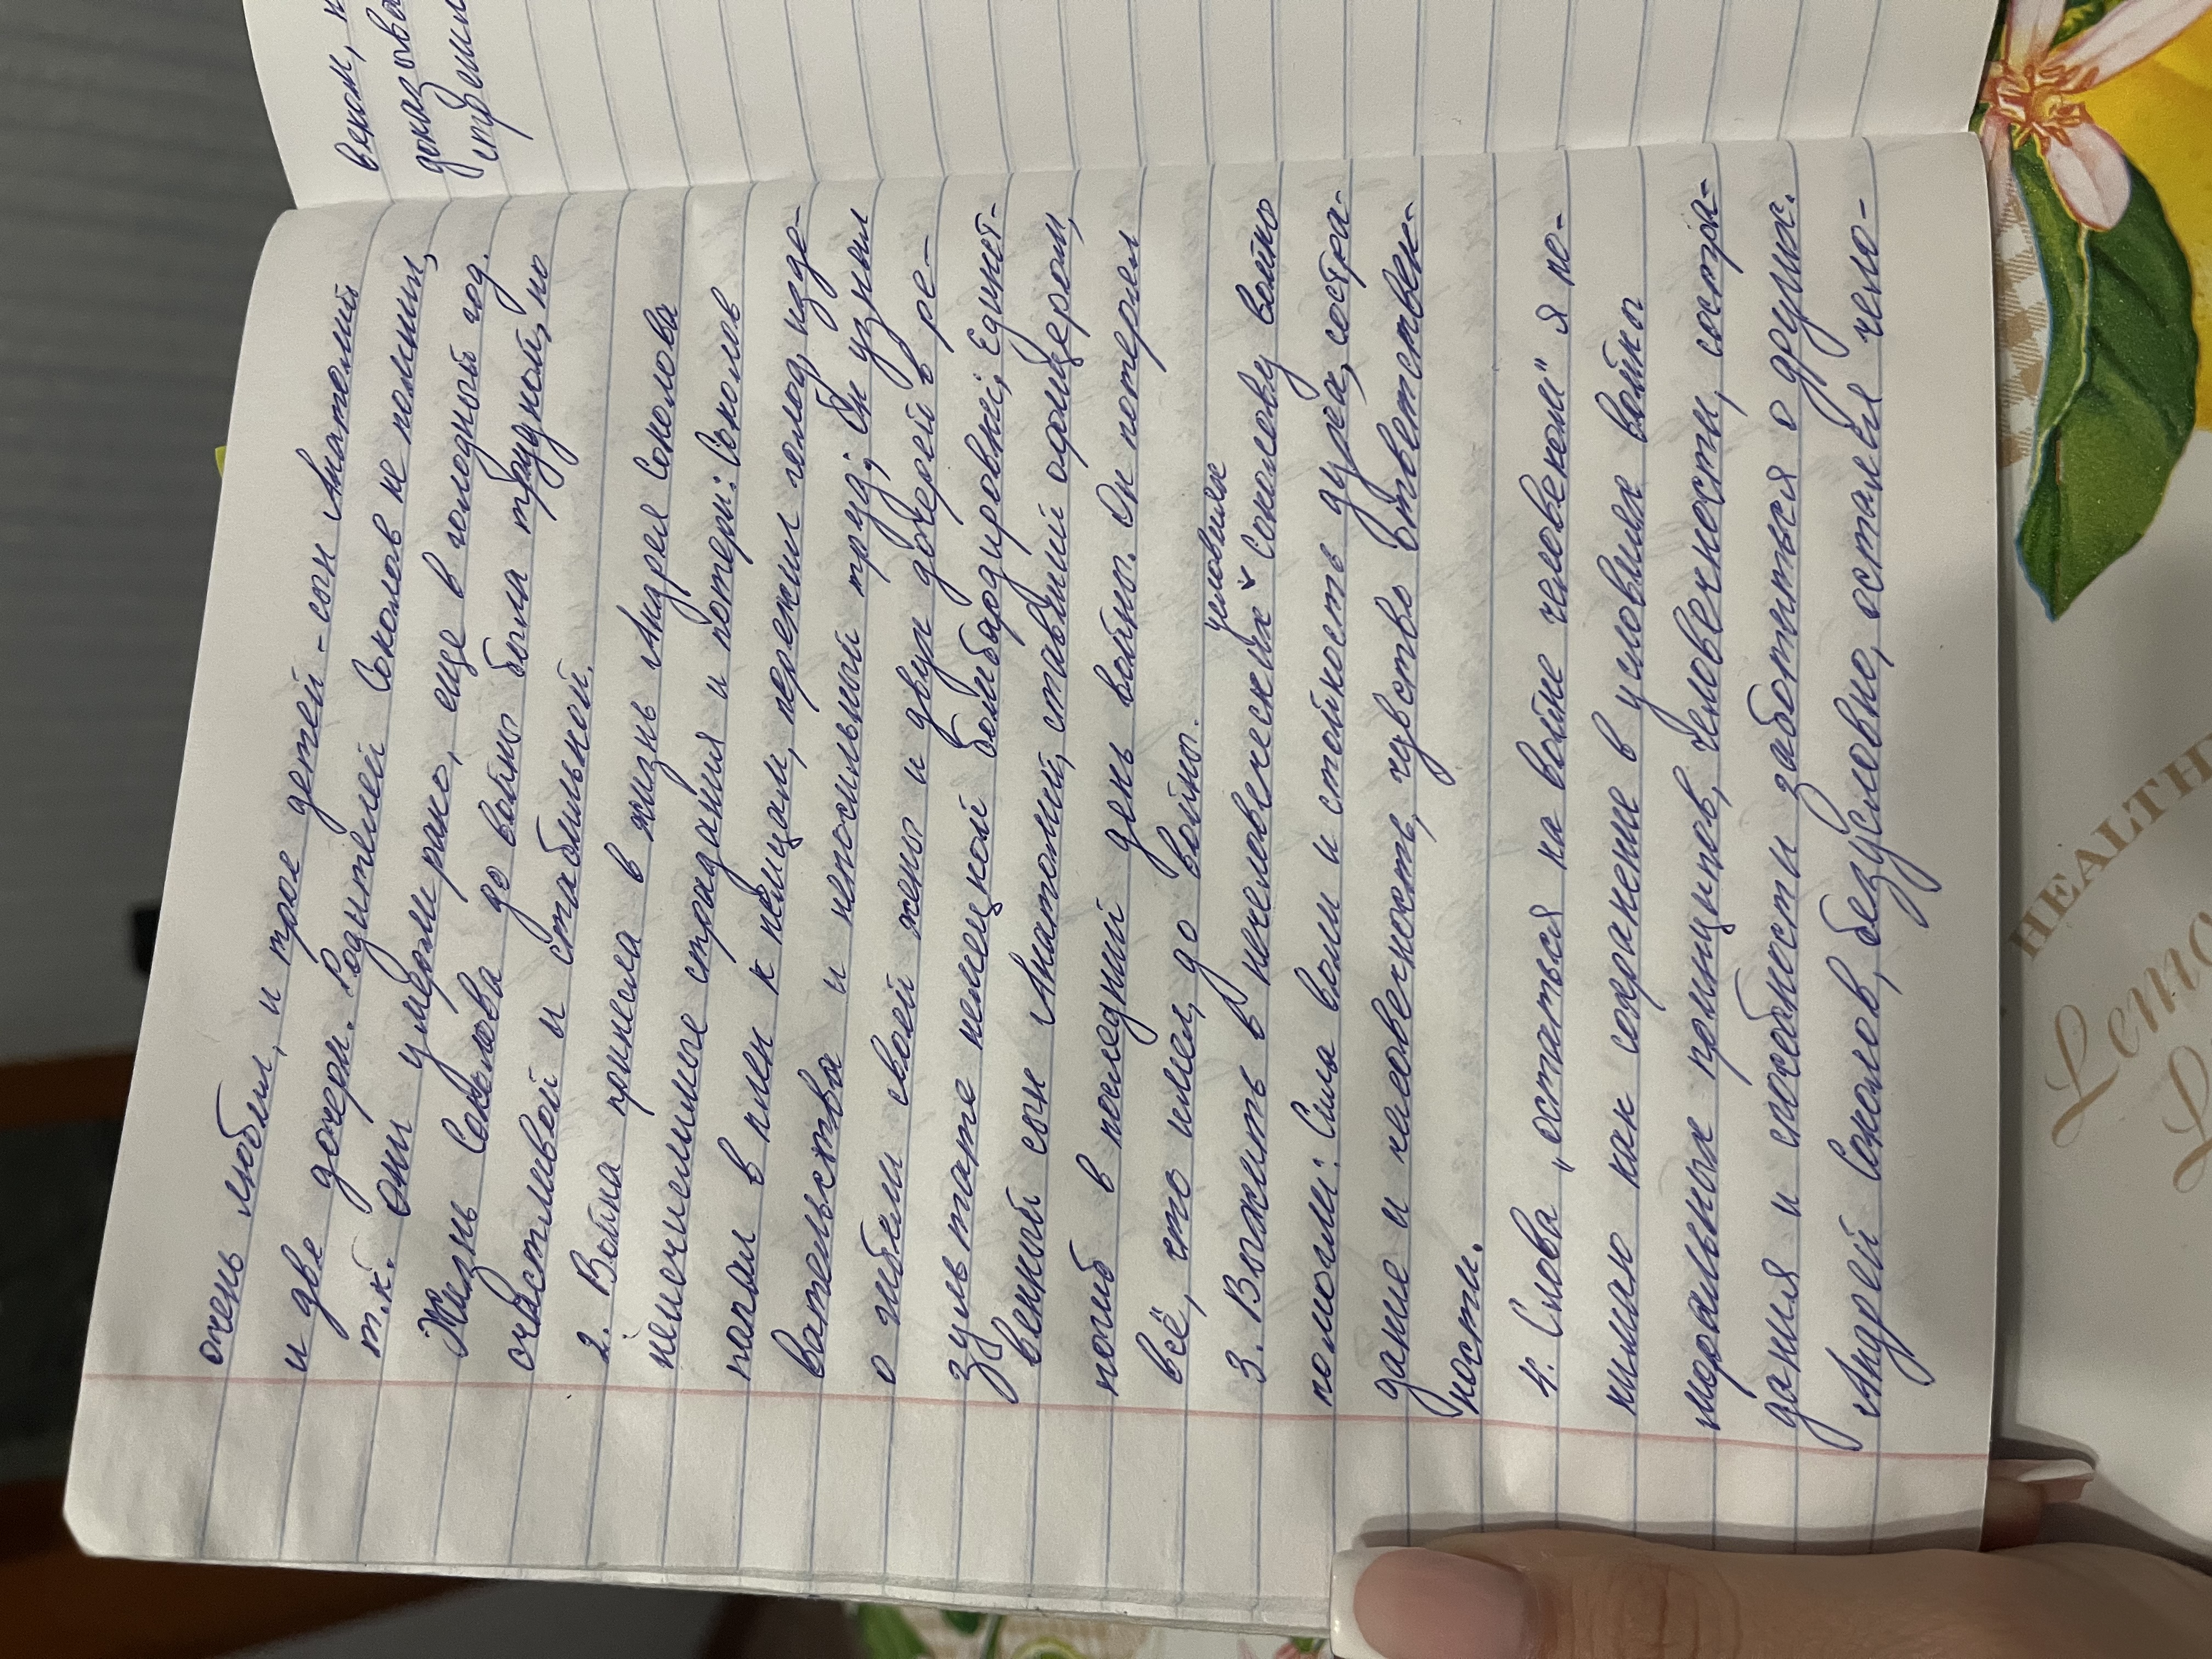 очень любил, и трое детей - сын Анатолий
и две дочери. Родителей Соколов не помнил,
т.к. они умерли рано, еще в голодный год.
Жизнь Соколова до войны была трудной, но
счастливой и стабильной.
2. Война принесла в жизнь Андрея Соколова
неисчислимые страдания и потери: Соколов
попал в плен к немцам, пережил голод, изде-
вательства и непосильный труд; Он узнал
о гибели своей жены и двух дочерей в ре-
зультате немецкой бомбардировки; Единст-
венный сын Анатолий, ставший офицером,
погиб в последний день войны. Он потерял
всё, что имел до войны.
условиях
3. Выжить в нечеловеческих ˅ Соколову войно
помогли: Сила воли и стойкость духа, состра-
дание и человечность, чувство ответствен-
ности.
4. Слова „остаться на войне человеком" я по-
нимаю как сохранение в условиях войны
моральных принципов, человечности, состра-
дания и способности заботиться о других.
Андрей Соколов, безусловно, остался чело-
веком,
доказыва
стремил
HEALTH
Lemo